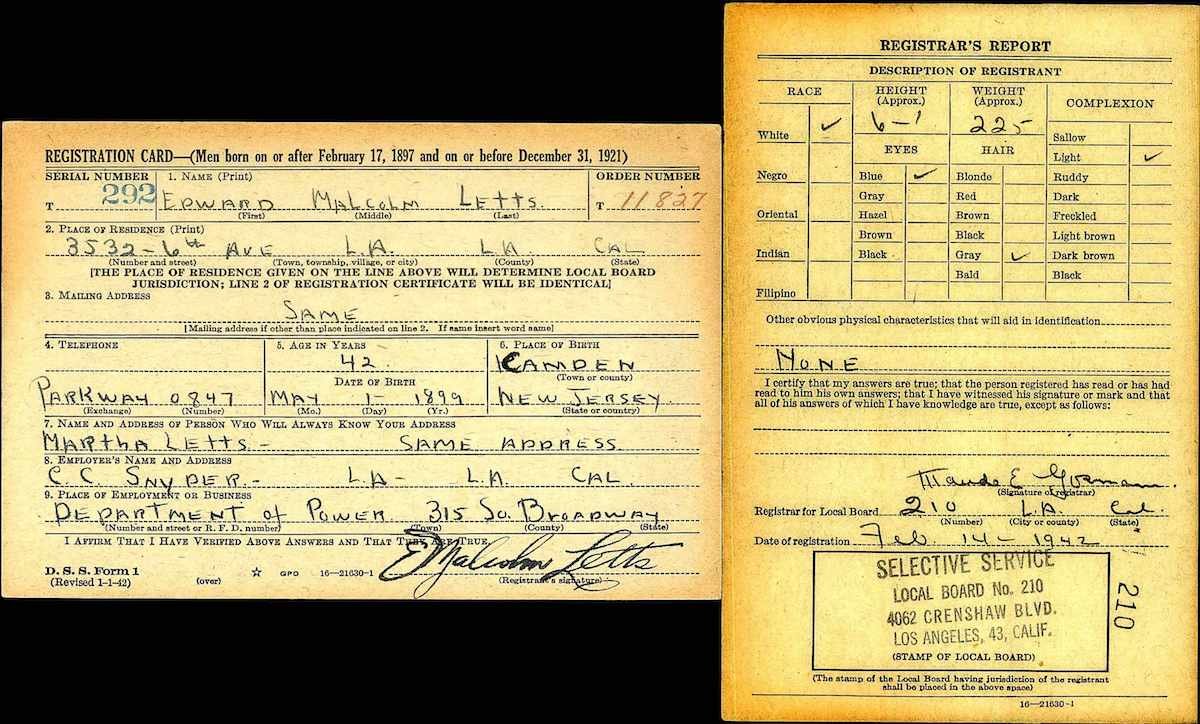 REGISTRATION CARD—(Men born on or after February 17, 1897 and on or before December 31, 1921)
SERIAL NUMBER 1. NAME (Print) ORDER NUMBER
T 292 EDWARD MALCOLM LETTS T 11827
(First) (Middle) (Last)
2. PLACE OF RESIDENCE (Print)
3532-6th AVE L.A. L.A. CAL
(Number and street) (Town, township, village, or city) (County) (State)
[THE PLACE OF RESIDENCE GIVEN ON THE LINE ABOVE WILL DETERMINE LOCAL BOARD
JURISDICTION; LINE 2 OF REGISTRATION CERTIFICATE WILL BE IDENTICAL]
3. MAILING ADDRESS
SAME
[Mailing address if other than place indicated on line 2. If same insert word same]
4. TELEPHONE 5. AGE IN YEARS 6. PLACE OF BIRTH
42 CAMDEN
(Town or county)
DATE OF BIRTH
PARKWAY 0847 MAY 1- 1899 NEW JERSEY
(Exchange) (Number) (Mo.) (Day) (Yr.) (State or country)
7. NAME AND ADDRESS OF PERSON WHO WILL ALWAYS KNOW YOUR ADDRESS
MARTHA LETTS - SAME ADDRESS
8. EMPLOYER'S NAME AND ADDRESS
C. C. SNYDER - LA - L.A. CAL.
9. PLACE OF EMPLOYMENT OR BUSINESS
DEPARTMENT of POWER 315 SO. BROADWAY
(Number and street or R. F. D. number) (Town) (County) (State)
I AFFIRM THAT I HAVE VERIFIED ABOVE ANSWERS AND THAT THEY ARE TRUE.
E Malcolm Letts
D. S. S. Form 1
(Revised 1-1-42) (over) ☆ GPO 16—21630-1 (Registrant's signature)
REGISTRAR'S REPORT
DESCRIPTION OF REGISTRANT
RACE HEIGHT (Approx.) WEIGHT (Approx.) COMPLEXION
White ✓ 6-1 225 Sallow
EYES HAIR Light ✓
Negro Blue ✓ Blonde Ruddy
Gray Red Dark
Oriental Hazel Brown Freckled
Brown Black Light brown
Indian Black Gray ✓ Dark brown
Bald Black
Filipino
Other obvious physical characteristics that will aid in identification
NONE
I certify that my answers are true; that the person registered has read or has had
read to him his own answers; that I have witnessed his signature or mark and that
all of his answers of which I have knowledge are true, except as follows:
Maude E. Gorman
(Signature of registrar)
Registrar for Local Board 210 L.A. Cal.
(Number) (City or county) (State)
Date of registration Feb. 14 - 1942
SELECTIVE SERVICE
LOCAL BOARD No. 210
4062 CRENSHAW BLVD.
LOS ANGELES, 43, CALIF.
(STAMP OF LOCAL BOARD)
210
(The stamp of the Local Board having jurisdiction of the registrant
shall be placed in the above space)
16—21630-1